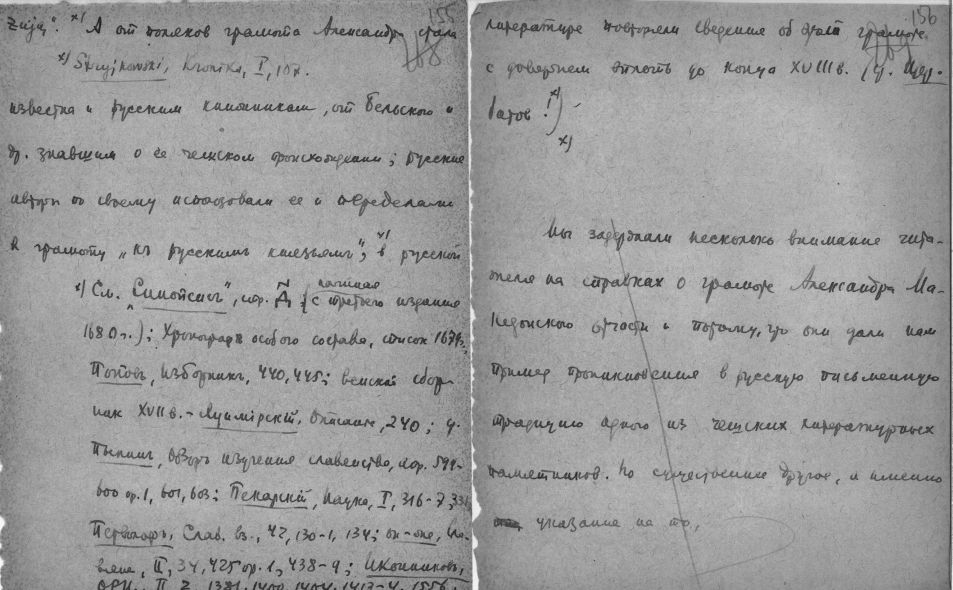 żują". х) А от поляков грамота Александра стала
155
168
х) Stryjkowski, Kronika, I, 107.
известна и русским книжникам, от Бельского и
др. знавшим о ее чешском происхождении; русские
авторы по своему использовали ее и переделали
в грамоту „къ русскимъ князьямъ"; х) в русской
х) См. „Синопсисъ", изд. (начиная
с третьего издания
1680 г.); Хронографъ особого состава, список 1679 г.,
Поповъ, Изборникъ, 440, 445; венский сбор-
ник XVII в. - Яцимирскій, Описание, 240; ч.
Пыпинъ, Обзоръ изучения славянства,
600 пр. 1, 601, 603; Пекарскій, Наука, I, 316-7,
Первольфъ, Слав. вз., 42, 130-1, 134; он-же, Сла-
вяне, II, 34, 425 пр. 1, 438-9; Иконниковъ,
ОРИ, II, 2, 1381,
156
169
литературе повторяли сведения об этой грамоте
с доверием вплоть до конца XVIII в. (ч. Щер-
батов !) х)
х)
Мы задержали несколько внимание чита-
теля на справках о грамоте Александра Ма-
кедонского отчасти и потому, что они дали нам
пример проникновения в русскую письменную
традицию одного из чешских литературных
памятников. Но существеннее другое, а именно
указание на то,